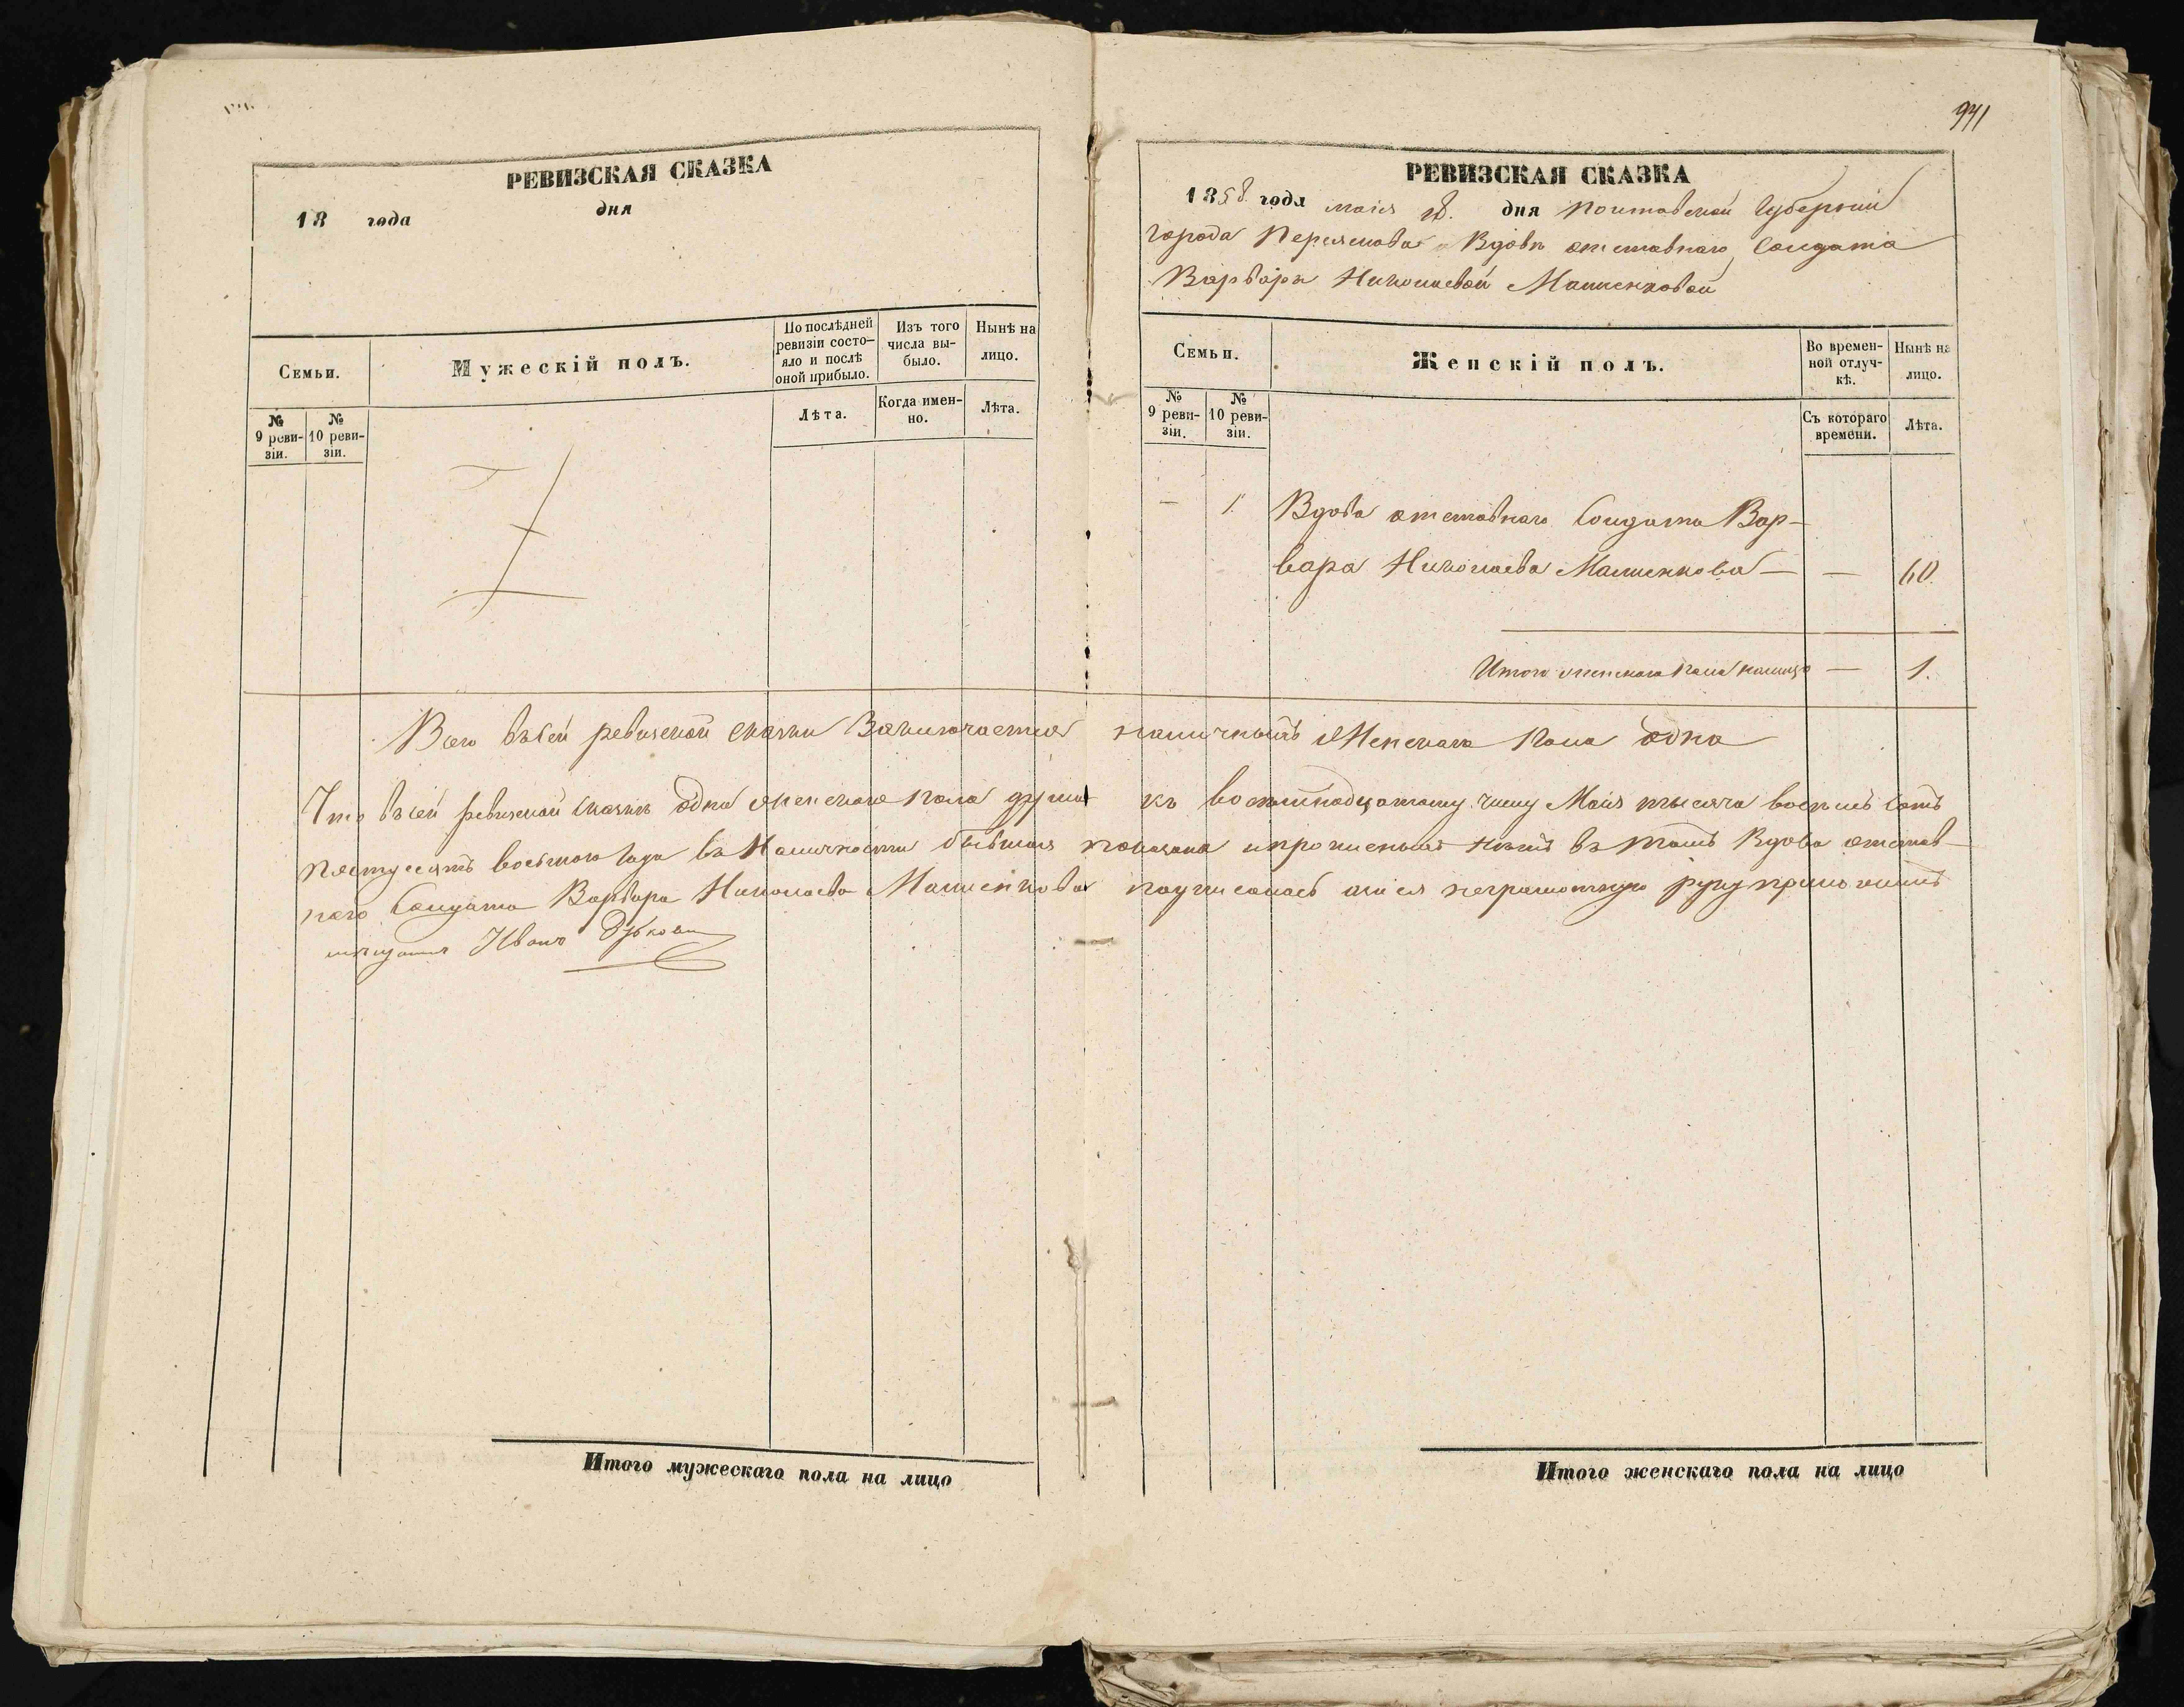 РЕВИЗСКАЯ СКАЗКА
18 года дня
Семьи.
Мужескій полъ.
По послѣдней ревизіи состо-яло и послѣ оной прибыло.
Изъ того числа вы-было.
Нынѣ на лицо.
№ 9 реви-зіи.
№ 10 реви-зіи.
Лѣта.
Когда имен-но.
Лѣта.
941
РЕВИЗСКАЯ СКАЗКА
1858 года маія 18. дня Полтавской Губерніи
города Переяслова Вдовы отставнаго Солдата
Варвары Николаевой
Семьи.
Женскій полъ.
Во времен-ной отлуч-кѣ.
Нынѣ на лицо.
№ 9 реви-зіи.
№ 10 реви-зіи.
Съ котораго времени.
Лѣта.
— 1. Вдова отставнаго Солдата Вар-
вара Николаева — — 60.
Итого женскаго пола налицо — 1.
Всего въ сей ревизской сказки Заключается наличныхъ Женскаго Пола одна
Что въ сей ревизской сказкѣ одна женскаго пола душа къ восемнадцатому числу Маія тысяча восемь сотъ
пятдесятъ восьмого года въ Наличности бывшая показана и прописныхъ нѣтъ въ томъ Вдова отстав-
наго Солдата Варвара Николаева подписалась а за ея неграмотную руку приложилъ
мѣщанинъ Иванъ
Итого мужескаго пола на лицо
Итого женскаго пола на лицо